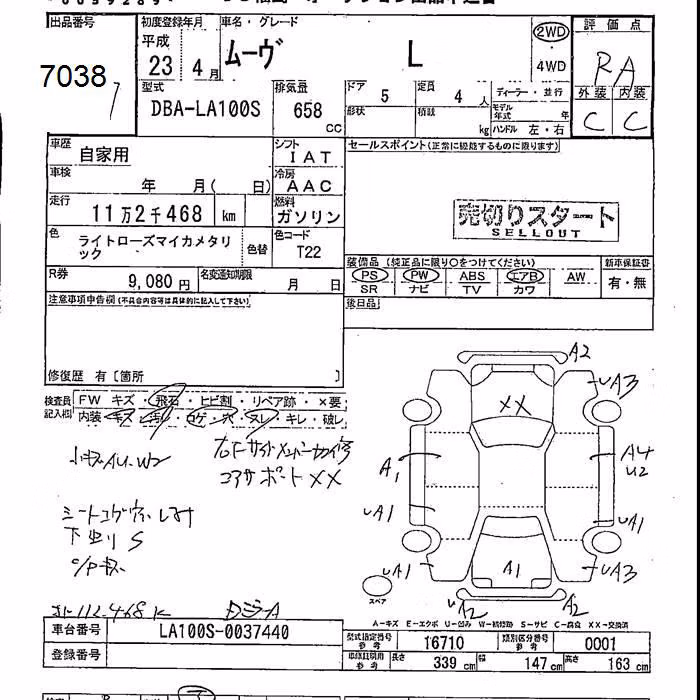 出品番号
7038
初度登録年月
平成
23 4月
車名・グレード
ムーヴ L
2WD
・
4WD
評価点
RA
外装 内装
C C
型式
DBA-LA100S
排気量
658
CC
ドア
5
定員
4 人
形状
積載
kg
ディーラー・並行
モデル年式 年
ハンドル 左・右
車歴
自家用
シフト
IAT
セールスポイント(正常に機能するものに限ります)
車検
年 月( 日)
冷房
AAC
走行
11万2千468 km
燃料
ガソリン
売切りスタート
SELLOUT
色
ライトローズマイカメタリ
ック
色替
色コード
T22
装備品 (純正品に限り〇をつけてください)
PS PW ABS エアB AW
SR ナビ TV カワ
新車保証書
有・無
R券
9,080円
名変通知期限
月 日
後日品
注意事項申告欄(不具合内容等は具体的に記入して下さい)
修復歴 有〔箇所 〕
検査員
記入欄
FW キズ・飛石・ヒビ割・リペア跡・×要
内装・キズ・汚れ・コゲ・穴・ヌレ・キレ・破レ
コアサポートXX
下回りS
112,468K
A2
UA3
XX
A1
A4
U2
UA1
UA1
UA1
A1
UA3
UA2
A2
スペア
A-キズ E-エクボ U-凹み W-補修跡 S-サビ C-腐食 XX-交換済
車台番号
LA100S-0037440
型式指定番号
参考
16710
類別区分番号
参考
0001
登録番号
車検証期用
参考
長さ
339 cm
幅
147 cm
高さ
163 cm